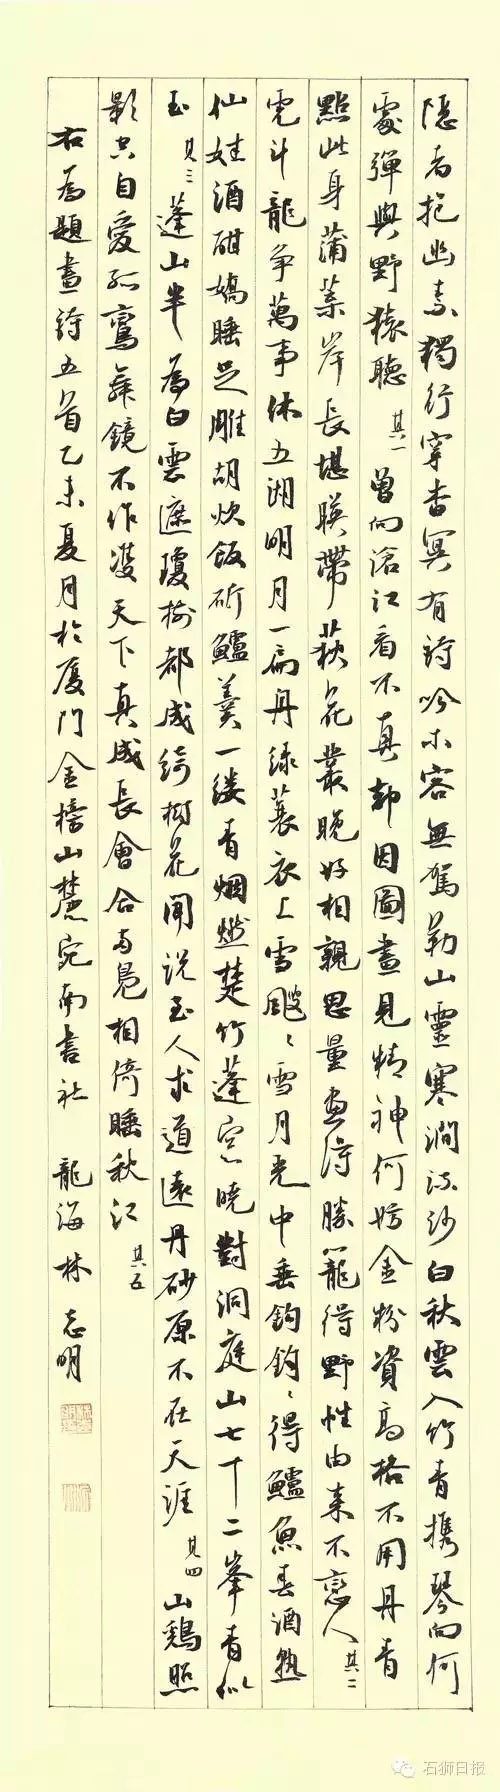 隐者抱幽素獨行穿杳冥有詩吟木客無駕勒山靈寒澗流沙白秋雲入竹青攜琴向何
處彈與野猿聽 其一 曾向滄江看不真却因圖畫見精神何妨金粉資高格不用丹青
點此身蒲葉岸長堪映帶荻花叢晚好相親思量畫得勝籠得野性由来不戀人 其二
虎斗龍争萬事休五湖明月一扁舟绿蓑衣上雪颼〻雪月光中垂釣鈎〻得鱸魚春酒熟
仙娃酒酣嬌睡足雕胡炊飯斫鱸羹一缕青烟燃楚竹蓬窗曉對洞庭山七十二峯青似
玉 其三 蓬山半為白雲遮瓊樹都成绮樹花聞説玉人求道遠丹砂原不在天涯 其四 山鷄照
影空自愛孤鸞舞鏡不作雙天下真成長會合兩鳧相倚睡秋江 其五
右為題畫詩五首乙未夏月於厦門金榜山麓宛南書社 龍海林志明
石狮日报